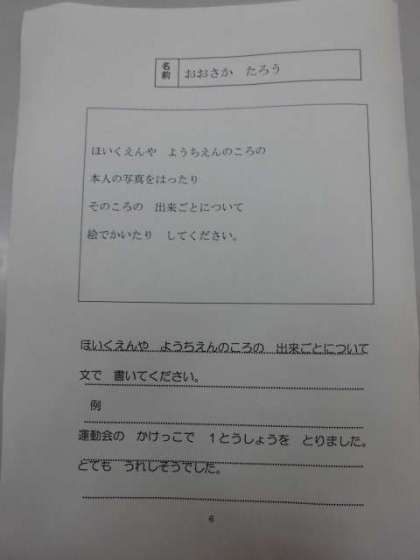 名前 おおさか　たろう
ほいくえんや　ようちえんのころの
本人の写真をはったり
そのころの　出来ごとについて
絵でかいたり　してください。
ほいくえんや　ようちえんのころの　出来ごとについて
文で　書いてください。
例
運動会の　かけっこで　１とうしょうを　とりました。
とても　うれしそうでした。
6